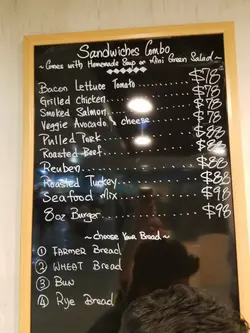 Sandwiches Combo
~ Comes with Homemade Soup or Mini Green Salad ~
Bacon Lettuce Tomato ........ $78
Grilled chicken ........ $78
Smoked Salmon ........ $78
Veggie Avocado & cheese ........ $78
Pulled Pork ........ $88
Roasted Beef ........ $88
Reuben ........ $88
Roasted Turkey ........ $88
Seafood Mix ........ $98
8oz Burger ........ $98
~ choose Your Bread ~
① FARMER Bread
② WHEAT Bread
③ Bun
④ Rye Bread